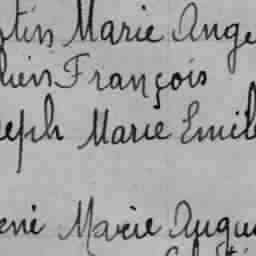 tin Marie Ange
lien François
seph Marie Emil
ené Marie Augu